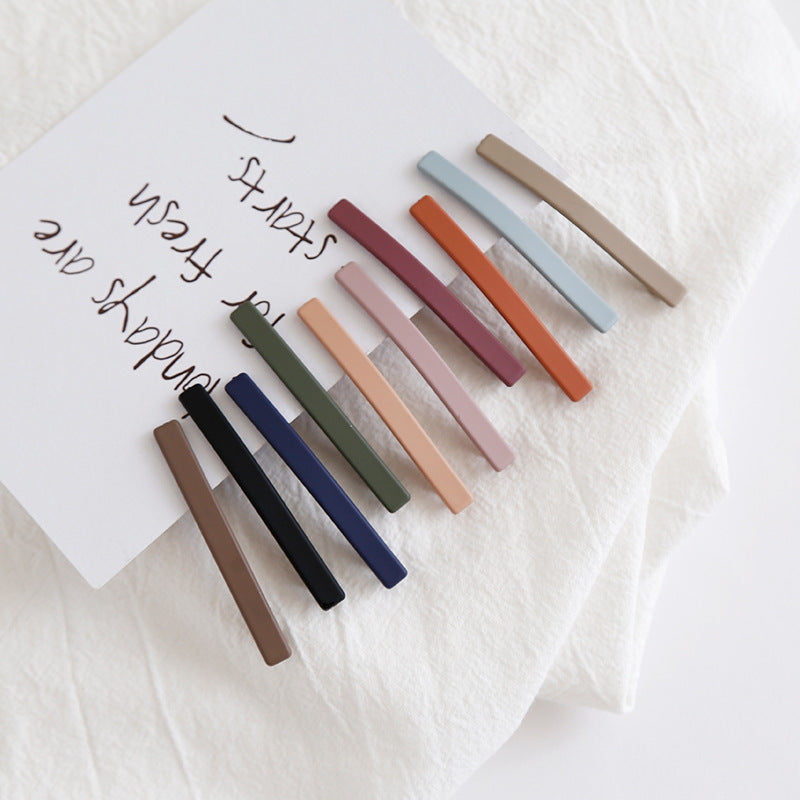 Mondays are
for fresh
starts.